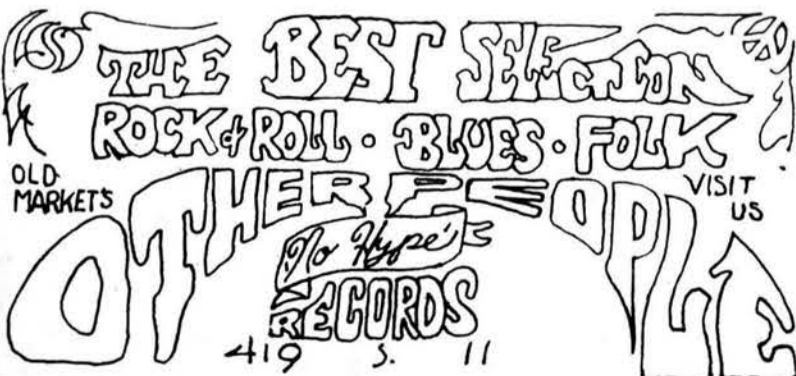 THE BEST SELECTION
ROCK & ROLL • BLUES • FOLK
OLD MARKET'S
OTHER PEOPLE
VISIT US
No Hype'
RECORDS
419 S. 11